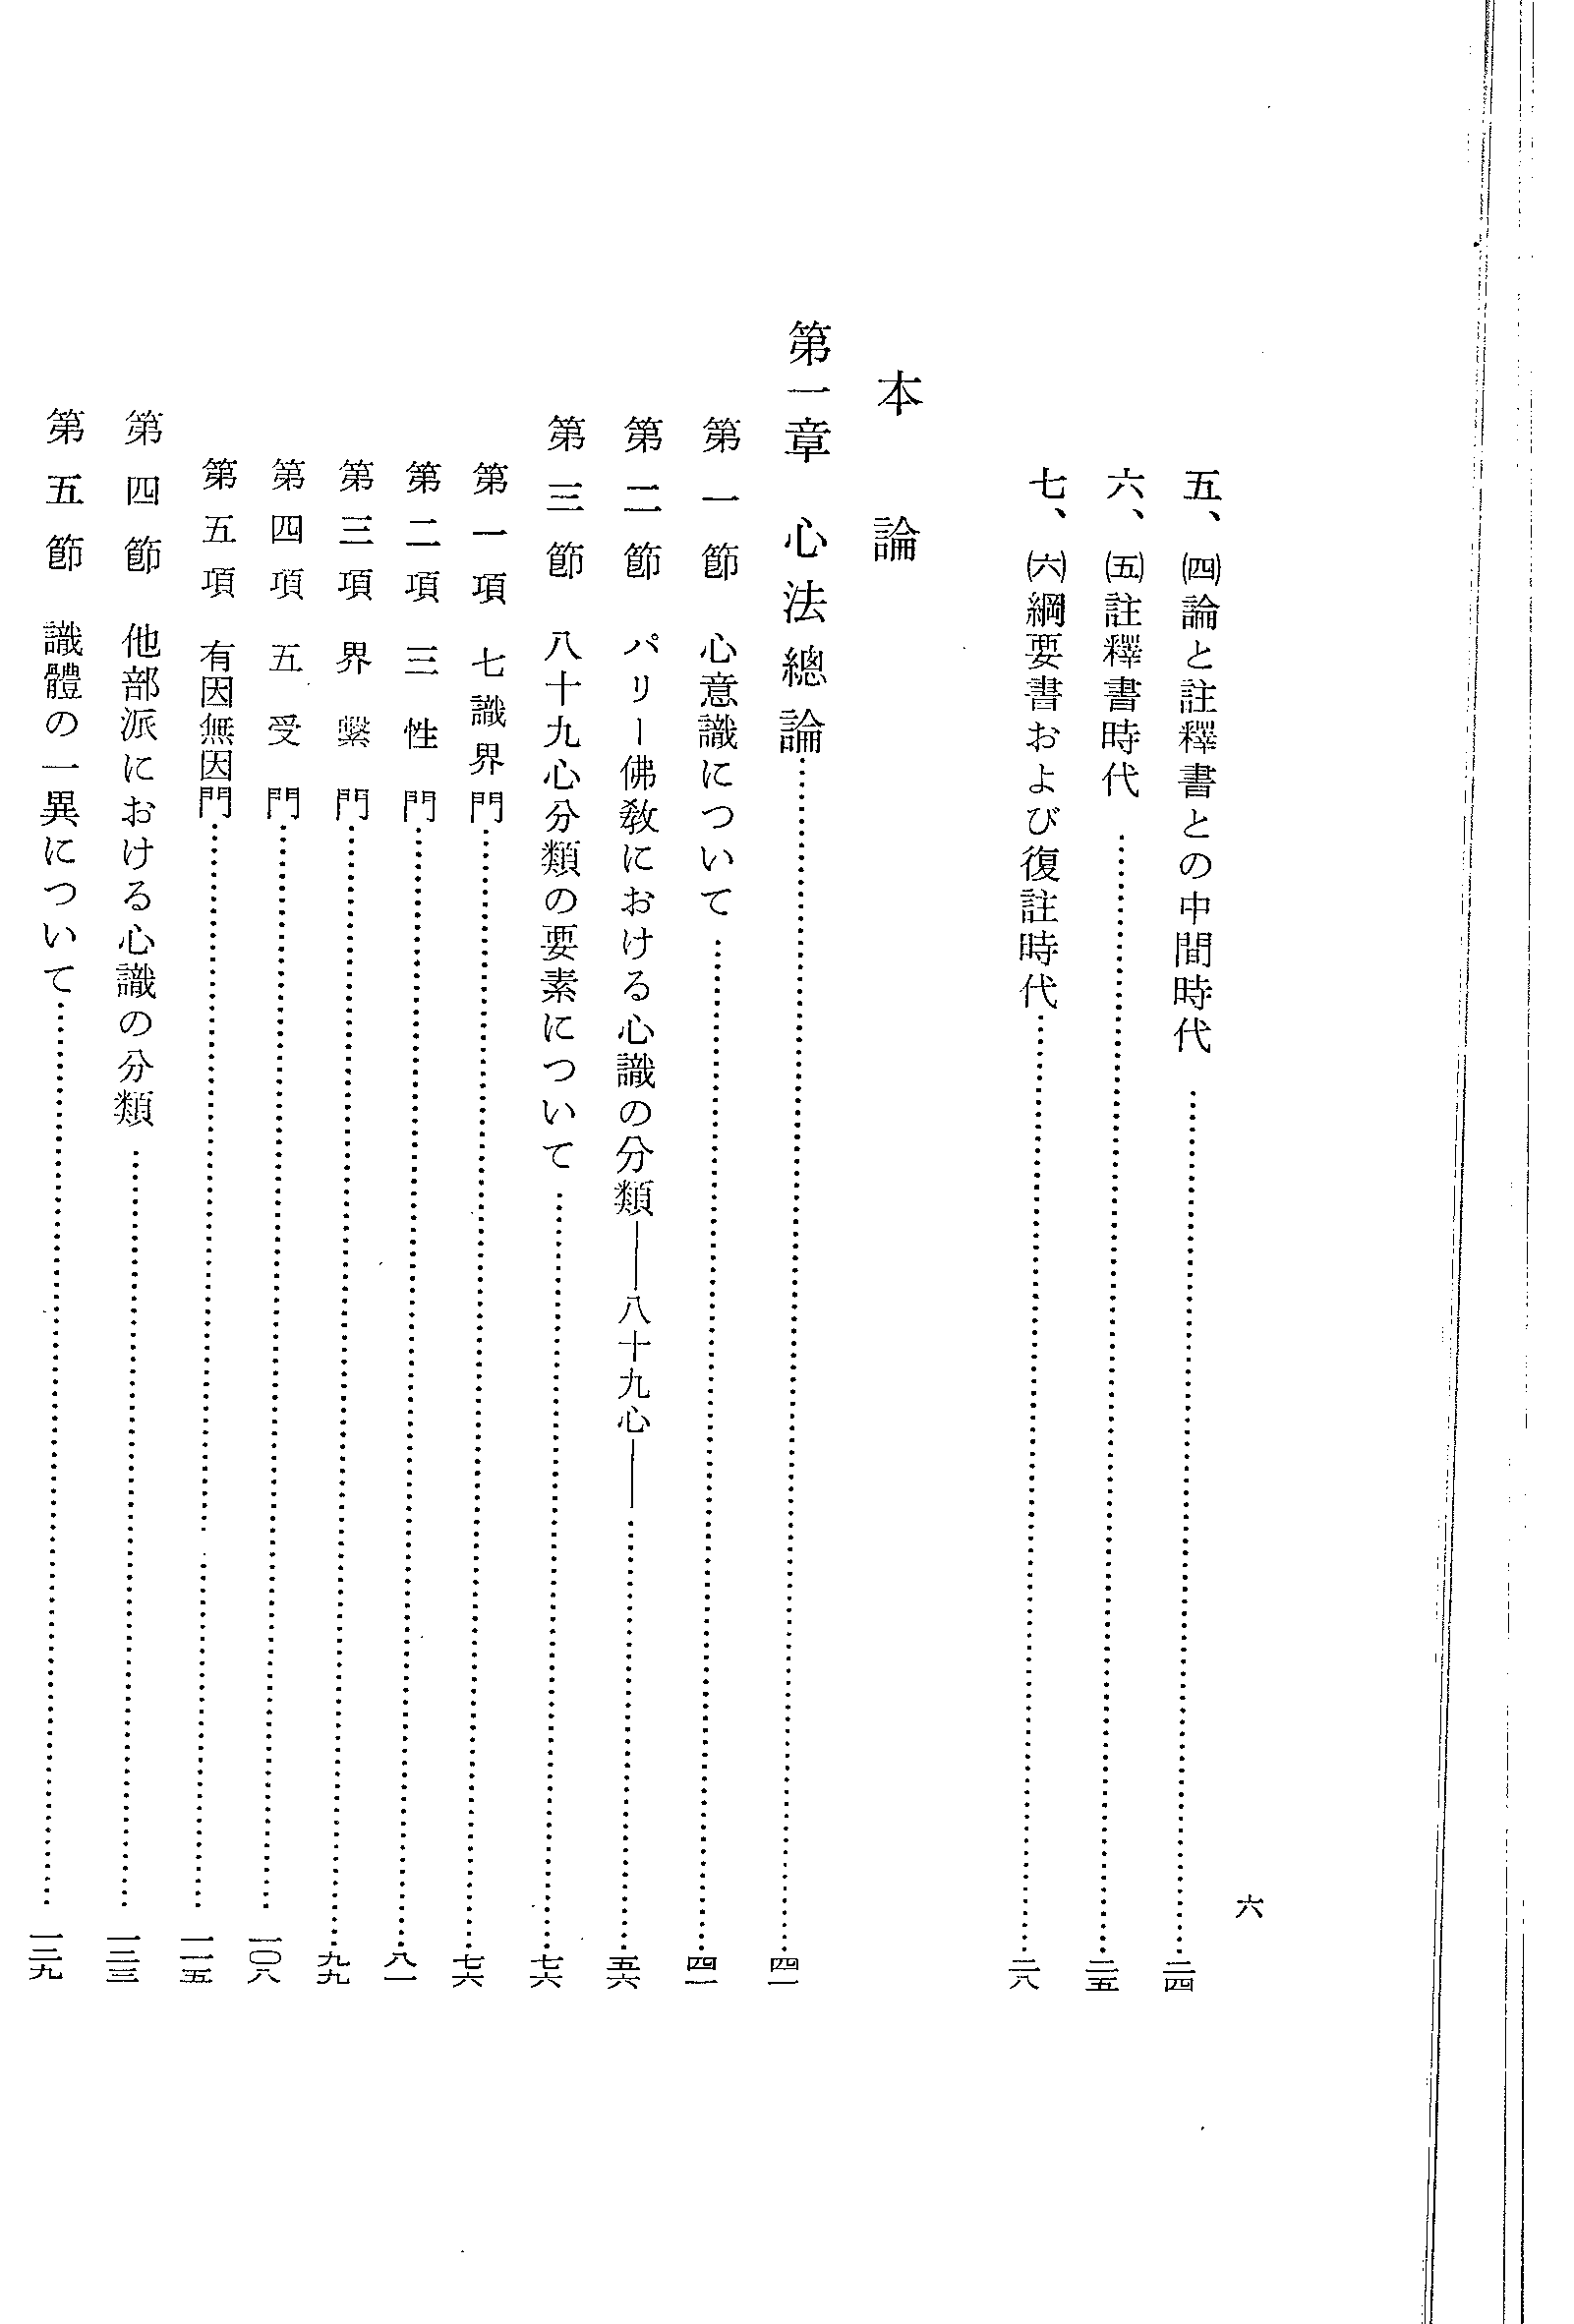 六
五、㈣論と註釋書との中間時代……二四
六、㈤註釋書時代……二五
七、㈥綱要書および復註時代……二八
本論
第一章 心法總論……四一
第一節 心意識について……四一
第二節 パリー佛敎における心識の分類——八十九心——……五六
第三節 八十九心分類の要素について……七六
第一項 七識界門……七六
第二項 三性門……八一
第三項 界繫門……九九
第四項 五受門……一〇八
第五項 有因無因門……一一五
第四節 他部派における心識の分類……一二三
第五節 識體の一異について……一二九